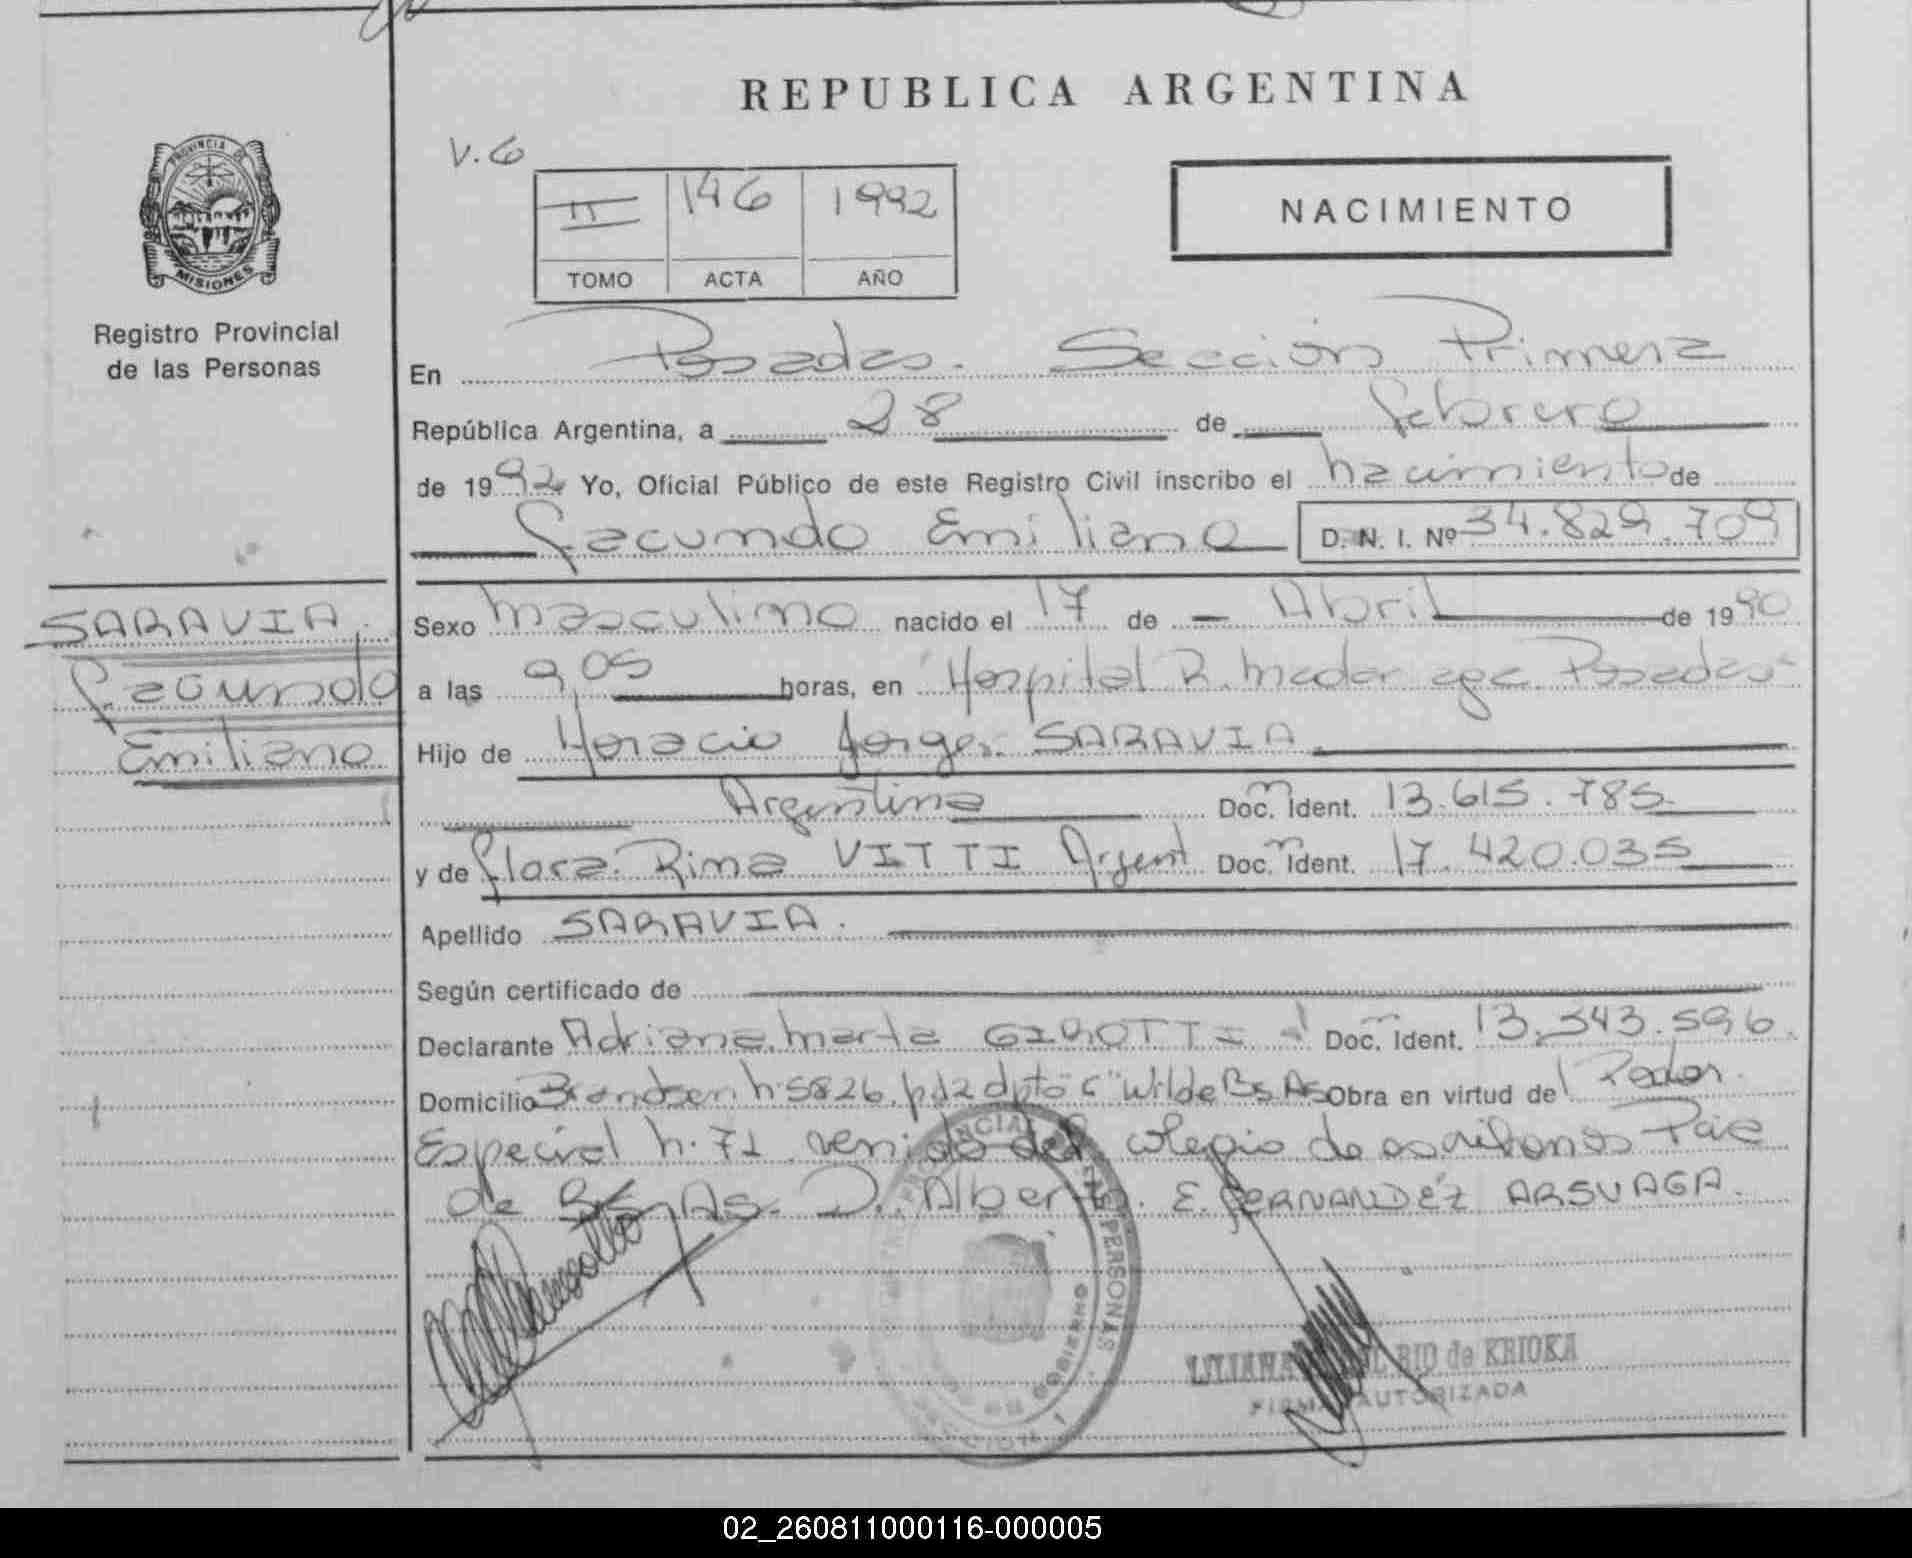 REPUBLICA ARGENTINA
PROVINCIA DE
MISIONES
Registro Provincial
de las Personas
V. 6
II 146 1992
TOMO ACTA AÑO
NACIMIENTO
En Posadas. Sección Primera
República Argentina, a 28 de febrero
de 1992 Yo, Oficial Público de este Registro Civil inscribo el nacimiento de
Facundo Emiliano D. N. I. Nº 34.829.709
SARAVIA.
Facundo
Emiliano
Sexo masculino nacido el 17 de Abril de 1990
a las 9,05 horas, en Hospital R. Madar. Posadas
Hijo de Horacio Jorge. SARAVIA
Argentina Doc. Ident. 13.615.785
y de Flora. Rima VITTI Argent Doc. Ident. 17.420.035
Apellido SARAVIA.
Según certificado de
Declarante Adriana. Marta GIROTTI Doc. Ident. 13.343.596.
Domicilio Brandsen n. 5826. dpto "C" Wilde Bs. As Obra en virtud del Poder
Especial n. 71 venido del colegio de escribanos
de Bs As. D. Alberto. E. FERNANDEZ ARSUAGA.
PERSONAS
GOBIERNO
LILIANA RIO de KRIOKA
FIRMA AUTORIZADA
02_260811000116-000005